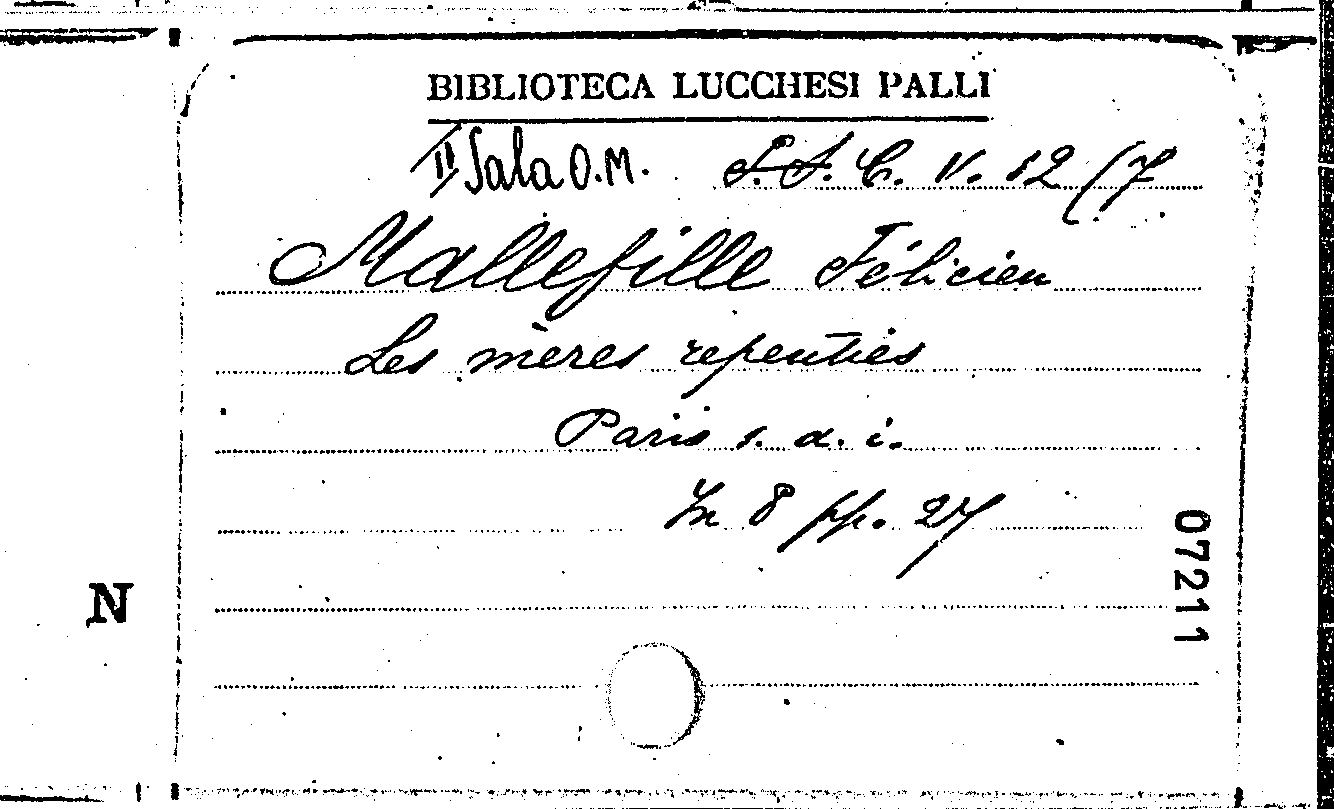 BIBLIOTECA LUCCHESI PALLI
II Sala O.M. S.S. C. V. 12 (7
Mallefille Félicien
Les mères repenties
Paris s. d. i.
In 8 pp. 27
07211
N